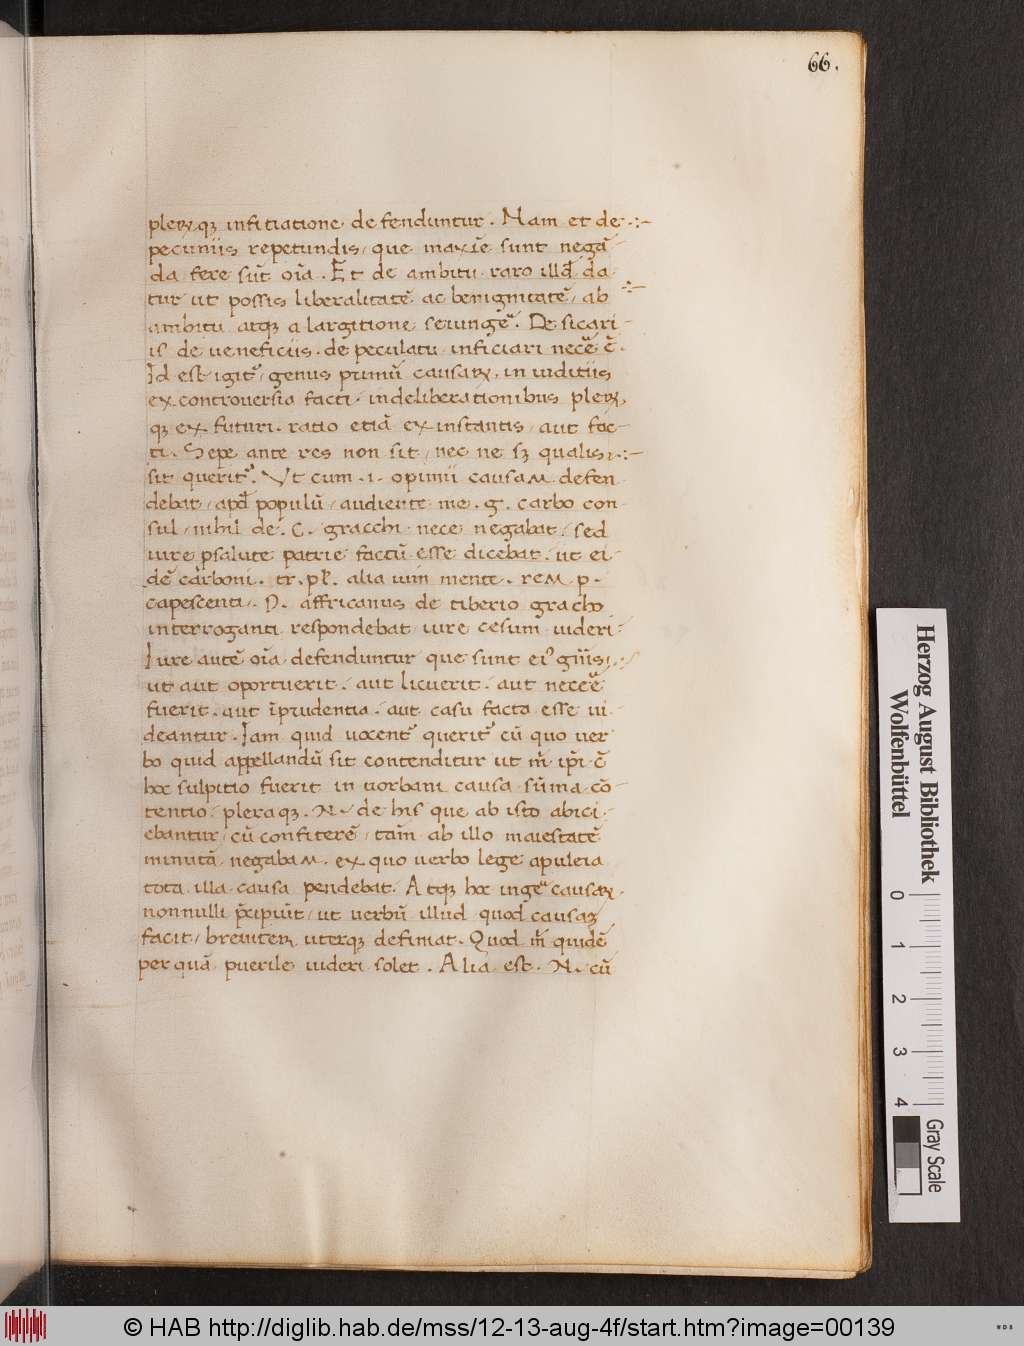 66.
pleꝝqꝫ infitiatione defenduntur. Nam et de
pecuniis repetundis, que maxīe sunt negā
da fere sūt oīa. Et de ambitu raro illđ da
tur ut possis liberalitatē ac benignitatē, ab
ambitu atqꝫ a largitione seiungeꝰ. De sicari
is de ueneficiis. de peculatu inficiari neceē ē.
Id est igitꝰ genus primū causaꝝ, in iuditiis
ex controuersia facti. indeliberationibus pleꝝ
qꝫ ex futuri. ratio etiā ex instantis, aut fac
ti. Sepe ante res non sit, nec ne sꝫ qualis
sit queritꝰ. Ut cum .l. opimii causam defen
debat, apđ populū, audiente me. g. carbo con
sul, nihil de. C. gracchi nece negabat, sed
iure psalute patrie factū esse dicebat. ut ei
dē carboni. tr. pl. alia iam mente. rem p.
capescenti. P. affricanus de tiberio gracho
interroganti respondebat iure cesum uideri.
Iure autē oīa defenduntur que sunt eiꝰ gn̄is,
ut aut oportuerit, aut licuerit, aut neceē
fuerit. aut īprudentia. aut casu facta esse ui
deantur. Iam quid uocentꝰ queritꝰ cū quo uer
bo quid appellandū sit contenditur ut m̄ ip̄i ē
hoc sulpitio fuerit in norbani causa sūma cō
tentio, pleraqꝫ. N. de his que ab isto abici
ebantur, cū confiterē, tam̄ ab illo maiestatē
minutā negabam. ex quo uerbo lege apuleia
tota illa causa pendebat. Atqꝫ hoc ingeꝰ causaꝝ
nonnulli p̄cipiūt, ut uerbū illud quod causaꝫ
facit, breuiter uterqꝫ definiat. Quod m̄ quidē
per quā puerile uideri solet. Alia est. N. cū
Herzog August Bibliothek
Wolfenbüttel
0 1 2 3 4
Gray Scale
© HAB http://diglib.hab.de/mss/12-13-aug-4f/start.htm?image=00139
WDB